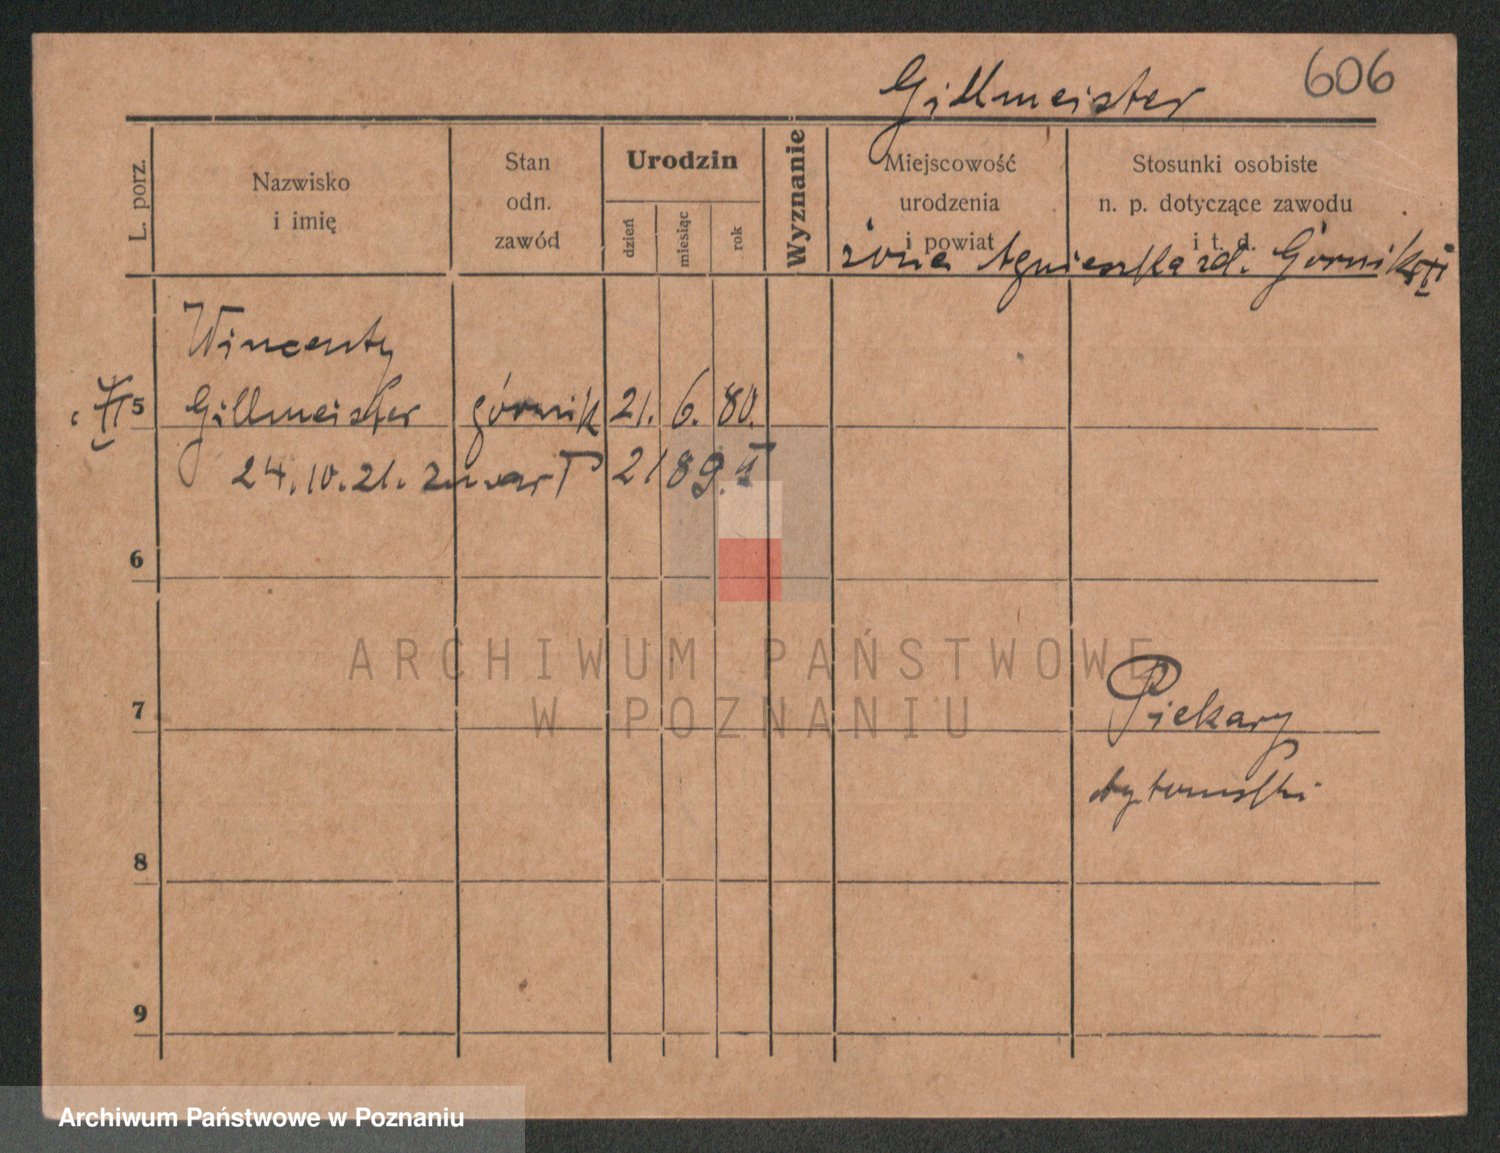 606
Gillmeister
L. porz.
Nazwisko
i imię
Stan
odn.
zawód
Urodzin
dzień
miesiąc
rok
Wyznanie
Miejscowość
urodzenia
i powiat
Stosunki osobiste
n. p. dotyczące zawodu
i t. d.
żona Agnieszka zd. Górnik
Wincenty
VI 5 Gillmeister górnik 21. 6. 80.
24. 10. 21. zmarł 21 89.
6
7
Piekary
bytomski
8
9
ARCHIWUM PAŃSTWOWE
W POZNANIU
Archiwum Państwowe w Poznaniu